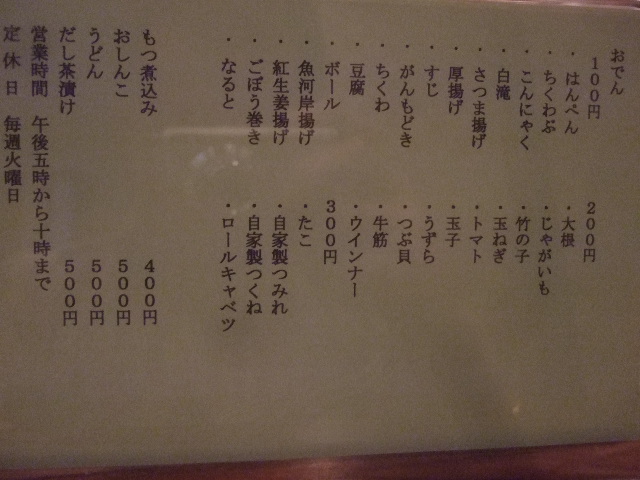 おでん
100円
・はんぺん
・ちくわぶ
・こんにゃく
・白滝
・さつま揚げ
・厚揚げ
・すじ
・がんもどき
・ちくわ
・豆腐
・ボール
・魚河岸揚げ
・紅生姜揚げ
・ごぼう巻き
・なると
200円
・大根
・じゃがいも
・竹の子
・玉ねぎ
・トマト
・玉子
・うずら
・つぶ貝
・牛筋
・ウインナー
300円
・たこ
・自家製つみれ
・自家製つくね
・ロールキャベツ
もつ煮込み 400円
おしんこ 500円
うどん 500円
だし茶漬け 500円
営業時間 午後五時から十時まで
定休日 毎週火曜日